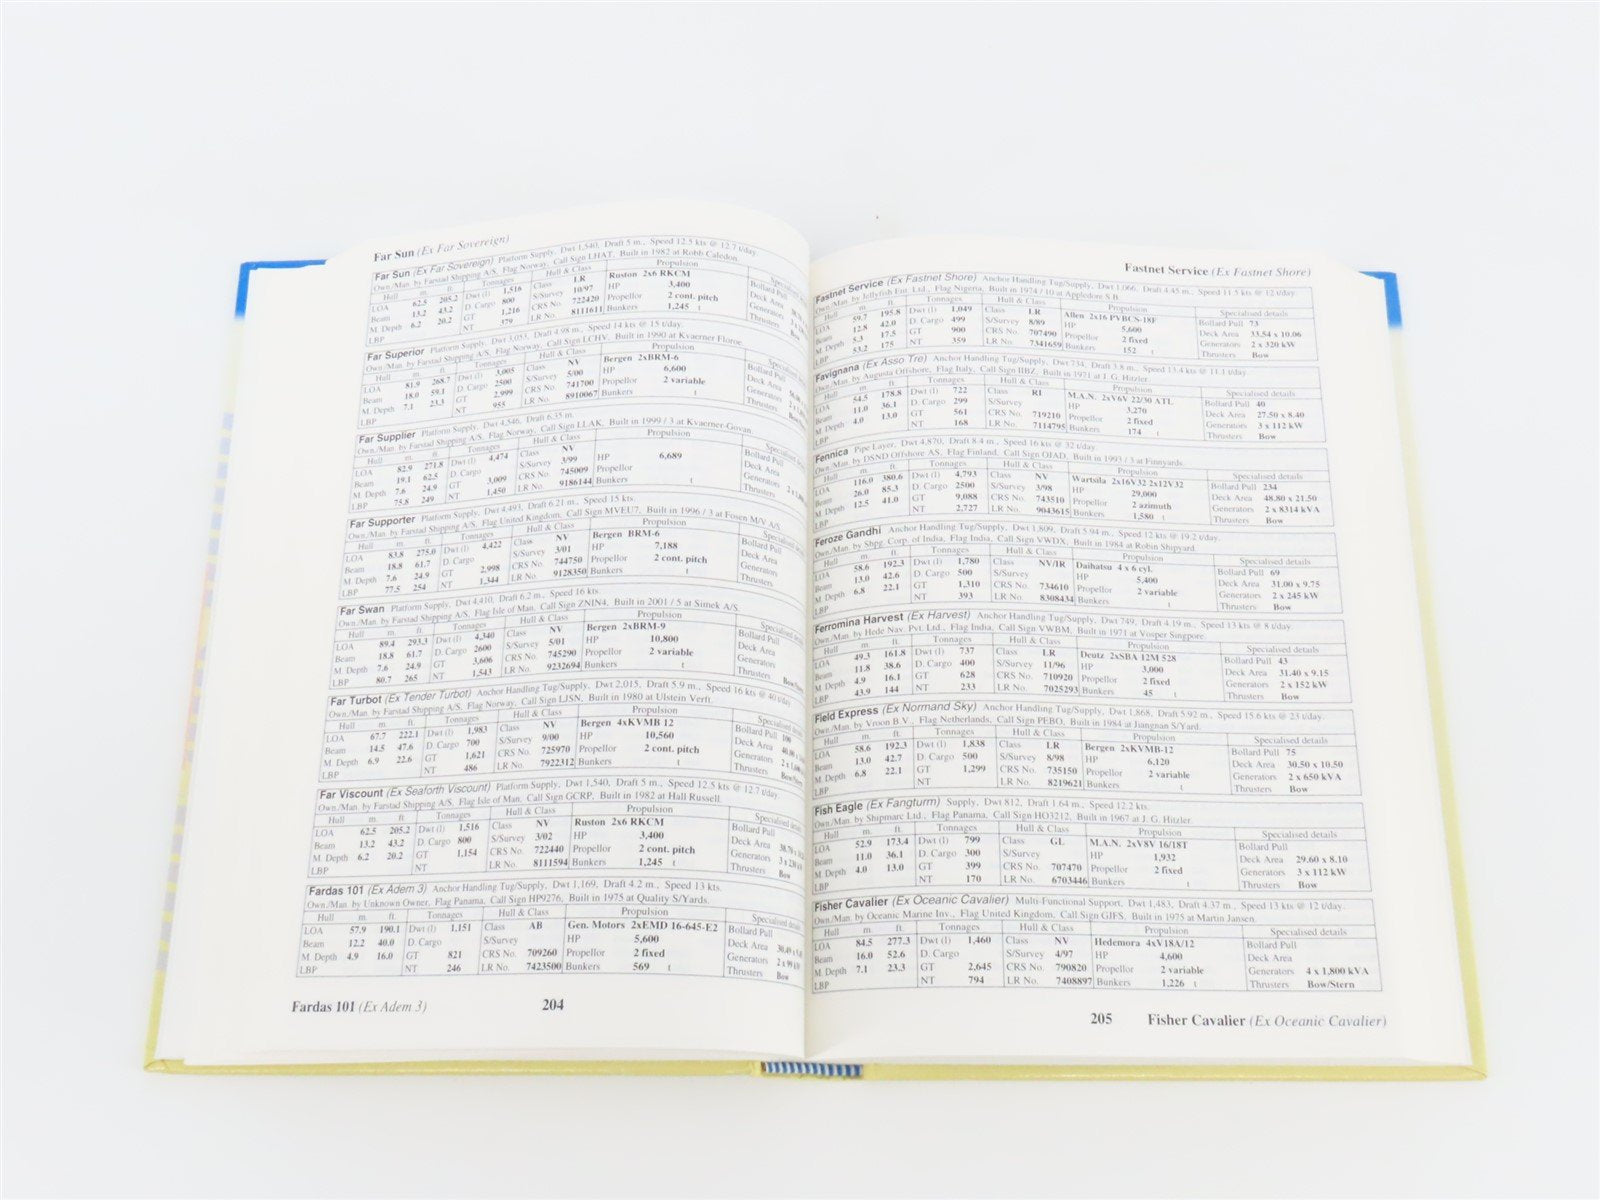 Far Sun (Ex Far Sovereign)
Far Sun (Ex Far Sovereign) Platform Supply, Dwt 1,540, Draft 5 m., Speed 12.5 kts @ 12.7 t/day.
Own./Man. by Farstad Shipping A/S, Flag Norway, Call Sign LHAT, Built in 1982 at Robb Caledon.
Hull m. ft. Tonnages Hull & Class Propulsion
LOA 62.5 205.2 Dwt (l) 1,516 Class LR Ruston 2x6 RKCM
Beam 13.2 43.2 D. Cargo 800 S/Survey 10/97 HP 3,400 Bollard Pull
M. Depth 6.2 20.2 GT 1,216 CRS No. 722420 Propellor 2 cont. pitch Deck Area
LBP NT 379 LR No. 8111611 Bunkers 1,245 t Generators
Thrusters
Far Superior Platform Supply, Dwt 3,053, Draft 4.98 m., Speed 14 kts @ 15 t/day.
Own./Man. by Farstad Shipping A/S, Flag Norway, Call Sign LCHV, Built in 1990 at Kvaerner Floroe.
Hull m. ft. Tonnages Hull & Class Propulsion
LOA 81.9 268.7 Dwt (l) 3,005 Class NV Bergen 2xBRM-6
Beam 18.0 59.1 D. Cargo 2500 S/Survey 5/00 HP 6,600 Bollard Pull
M. Depth 7.1 23.3 GT 2,999 CRS No. 741700 Propellor 2 variable Deck Area
LBP NT 955 LR No. 8910067 Bunkers t Generators
Thrusters
Far Supplier Platform Supply, Dwt 4,546, Draft 6.35 m.
Own./Man. by Farstad Shipping A/S, Flag Norway, Call Sign LLAK, Built in 1999 / 3 at Kvaerner-Govan.
Hull m. ft. Tonnages Hull & Class Propulsion
LOA 82.9 271.8 Dwt (l) 4,474 Class NV
Beam 19.1 62.5 D. Cargo S/Survey 3/99 HP 6,689 Bollard Pull
M. Depth 7.6 24.9 GT 3,009 CRS No. 745009 Propellor Deck Area
LBP 75.8 249 NT 1,450 LR No. 9186144 Bunkers t Generators
Thrusters
Far Supporter Platform Supply, Dwt 4,493, Draft 6.21 m., Speed 15 kts.
Own./Man. by Farstad Shipping A/S, Flag United Kingdom, Call Sign MVEU7, Built in 1996 / 3 at Fosen M/V A/S.
Hull m. ft. Tonnages Hull & Class Propulsion
LOA 83.8 275.0 Dwt (l) 4,422 Class NV Bergen BRM-6
Beam 18.8 61.7 D. Cargo S/Survey 3/01 HP 7,188 Bollard Pull
M. Depth 7.6 24.9 GT 2,998 CRS No. 744750 Propellor 2 cont. pitch Deck Area
LBP 77.5 254 NT 1,344 LR No. 9128350 Bunkers t Generators
Thrusters
Far Swan Platform Supply, Dwt 4,410, Draft 6.2 m., Speed 16 kts.
Own./Man. by Farstad Shipping A/S, Flag Isle of Man, Call Sign ZNIN4, Built in 2001 / 5 at Simek A/S.
Hull m. ft. Tonnages Hull & Class Propulsion
LOA 89.4 293.3 Dwt (l) 4,340 Class NV Bergen 2xBRM-9
Beam 18.8 61.7 D. Cargo 2600 S/Survey 5/01 HP 10,800 Bollard Pull
M. Depth 7.6 24.9 GT 3,606 CRS No. 745290 Propellor 2 variable Deck Area
LBP 80.7 265 NT 1,543 LR No. 9232694 Bunkers t Generators
Thrusters
Far Turbot (Ex Tender Turbot) Anchor Handling Tug/Supply, Dwt 2,015, Draft 5.9 m., Speed 16 kts @ 40 t/day.
Own./Man. by Farstad Shipping A/S, Flag Norway, Call Sign LJSN, Built in 1980 at Ulstein Verft.
Hull m. ft. Tonnages Hull & Class Propulsion
LOA 67.7 222.1 Dwt (l) 1,983 Class NV Bergen 4xKVMB 12
Beam 14.5 47.6 D. Cargo 700 S/Survey 9/00 HP 10,560 Bollard Pull 100
M. Depth 6.9 22.6 GT 1,621 CRS No. 725970 Propellor 2 cont. pitch Deck Area
LBP NT 486 LR No. 7922312 Bunkers t Generators
Thrusters
Far Viscount (Ex Seaforth Viscount) Platform Supply, Dwt 1,540, Draft 5 m., Speed 12.5 kts @ 12.7 t/day.
Own./Man. by Farstad Shipping A/S, Flag Isle of Man, Call Sign GCRP, Built in 1982 at Hall Russell.
Hull m. ft. Tonnages Hull & Class Propulsion
LOA 62.5 205.2 Dwt (l) 1,516 Class NV Ruston 2x6 RKCM
Beam 13.2 43.2 D. Cargo 800 S/Survey 3/02 HP 3,400 Bollard Pull
M. Depth 6.2 20.2 GT 1,154 CRS No. 722440 Propellor 2 cont. pitch Deck Area
LBP NT LR No. 8111594 Bunkers 1,245 t Generators
Thrusters Bow
Fardas 101 (Ex Adem 3) Anchor Handling Tug/Supply, Dwt 1,169, Draft 4.2 m., Speed 13 kts.
Own./Man. by Unknown Owner, Flag Panama, Call Sign HP9276, Built in 1975 at Quality S/Yards.
Hull m. ft. Tonnages Hull & Class Propulsion
LOA 57.9 190.1 Dwt (l) 1,151 Class AB Gen. Motors 2xEMD 16-645-E2
Beam 12.2 40.0 D. Cargo S/Survey HP 5,600 Bollard Pull
M. Depth 4.9 16.0 GT 821 CRS No. 709260 Propellor 2 fixed Deck Area
LBP NT 246 LR No. 7423500 Bunkers 569 t Generators
Thrusters Bow
Fardas 101 (Ex Adem 3) 204
Fastnet Service (Ex Fastnet Shore)
Fastnet Service (Ex Fastnet Shore) Anchor Handling Tug/Supply, Dwt 1,066, Draft 4.45 m., Speed 11.5 kts @ 12 t/day.
Own./Man. by Jellyfish Ent. Ltd., Flag Nigeria, Built in 1974 / 10 at Appledore S.B.
Hull m. ft. Tonnages Hull & Class Propulsion Specialised details
LOA 59.7 195.8 Dwt (l) 1,049 Class LR Allen 2x16 PVBCS-18F Bollard Pull 73
Beam 12.8 42.0 D. Cargo 499 S/Survey 8/89 HP 5,600 Deck Area 33.54 x 10.06
M. Depth 5.3 17.5 GT 900 CRS No. 707490 Propellor 2 fixed Generators 2 x 320 kW
LBP 53.2 175 NT 359 LR No. 7341659 Bunkers 152 t Thrusters Bow
Favignana (Ex Asso Tre) Anchor Handling Tug/Supply, Dwt 734, Draft 3.8 m., Speed 13.4 kts @ 11.1 t/day.
Own./Man. by Augusta Offshore, Flag Italy, Call Sign IIBZ, Built in 1971 at J. G. Hitzler.
Hull m. ft. Tonnages Hull & Class Propulsion Specialised details
LOA 54.5 178.8 Dwt (l) 722 Class RI M.A.N. 2xV6V 22/30 ATL Bollard Pull 40
Beam 11.0 36.1 D. Cargo 299 S/Survey HP 3,270 Deck Area 27.50 x 8.40
M. Depth 4.0 13.0 GT 561 CRS No. 719210 Propellor 2 fixed Generators 3 x 112 kW
LBP NT 168 LR No. 7114795 Bunkers 174 t Thrusters Bow
Fennica Pipe Layer, Dwt 4,870, Draft 8.4 m., Speed 16 kts @ 32 t/day.
Own./Man. by DSND Offshore AS, Flag Finland, Call Sign OJAD, Built in 1993 / 3 at Finnyards.
Hull m. ft. Tonnages Hull & Class Propulsion Specialised details
LOA 116.0 380.6 Dwt (l) 4,793 Class NV Wartsila 2x16V32 2x12V32 Bollard Pull 234
Beam 26.0 85.3 D. Cargo 2500 S/Survey 3/98 HP 29,000 Deck Area 48.80 x 21.50
M. Depth 12.5 41.0 GT 9,088 CRS No. 743510 Propellor 2 azimuth Generators 2 x 8314 kVA
LBP NT 2,727 LR No. 9043615 Bunkers 1,580 t Thrusters Bow
Feroze Gandhi Anchor Handling Tug/Supply, Dwt 1,809, Draft 5.94 m., Speed 12 kts @ 19.2 t/day.
Own./Man. by Shpg. Corp. of India, Flag India, Call Sign VWDX, Built in 1984 at Robin Shipyard.
Hull m. ft. Tonnages Hull & Class Propulsion Specialised details
LOA 58.6 192.3 Dwt (l) 1,780 Class NV/IR Daihatsu 4 x 6 cyl. Bollard Pull 69
Beam 13.0 42.6 D. Cargo 500 S/Survey HP 5,400 Deck Area 31.00 x 9.75
M. Depth 6.8 22.1 GT 1,310 CRS No. 734610 Propellor 2 variable Generators 2 x 245 kW
LBP NT 393 LR No. 8308434 Bunkers t Thrusters Bow
Ferromina Harvest (Ex Harvest) Anchor Handling Tug/Supply, Dwt 749, Draft 4.19 m., Speed 13 kts @ 8 t/day.
Own./Man. by Hede Nav. Pvt. Ltd., Flag India, Call Sign VWBM, Built in 1971 at Vosper Singpore.
Hull m. ft. Tonnages Hull & Class Propulsion Specialised details
LOA 49.3 161.8 Dwt (l) 737 Class LR Deutz 2xSBA 12M 528 Bollard Pull 43
Beam 11.8 38.6 D. Cargo 400 S/Survey 11/96 HP 3,000 Deck Area 31.40 x 9.15
M. Depth 4.9 16.1 GT 628 CRS No. 710920 Propellor 2 fixed Generators 2 x 152 kW
LBP 43.9 144 NT 233 LR No. 7025293 Bunkers 45 t Thrusters Bow
Field Express (Ex Normand Sky) Anchor Handling Tug/Supply, Dwt 1,868, Draft 5.92 m., Speed 15.6 kts @ 23 t/day.
Own./Man. by Vroon B.V., Flag Netherlands, Call Sign PEBO, Built in 1984 at Jiangnan S/Yard.
Hull m. ft. Tonnages Hull & Class Propulsion Specialised details
LOA 58.6 192.3 Dwt (l) 1,838 Class LR Bergen 2xKVMB-12 Bollard Pull 75
Beam 13.0 42.7 D. Cargo 500 S/Survey 8/98 HP 6,120 Deck Area 30.50 x 10.50
M. Depth 6.8 22.1 GT 1,299 CRS No. 735150 Propellor 2 variable Generators 2 x 650 kVA
LBP NT LR No. 8219621 Bunkers t Thrusters Bow
Fish Eagle (Ex Fangturm) Supply, Dwt 812, Draft 1.64 m., Speed 12.2 kts.
Own./Man. by Shipmarc Ltd., Flag Panama, Call Sign HO3212, Built in 1967 at J. G. Hitzler.
Hull m. ft. Tonnages Hull & Class Propulsion Specialised details
LOA 52.9 173.4 Dwt (l) 799 Class GL M.A.N. 2xV8V 16/18T Bollard Pull
Beam 11.0 36.1 D. Cargo 300 S/Survey HP 1,932 Deck Area 29.60 x 8.10
M. Depth 4.0 13.0 GT 399 CRS No. 707470 Propellor 2 fixed Generators 3 x 112 kW
LBP NT 170 LR No. 6703446 Bunkers t Thrusters Bow
Fisher Cavalier (Ex Oceanic Cavalier) Multi-Functional Support, Dwt 1,483, Draft 4.37 m., Speed 13 kts @ 12 t/day.
Own./Man. by Oceanic Marine Inv., Flag United Kingdom, Call Sign GJFS, Built in 1975 at Martin Jansen.
Hull m. ft. Tonnages Hull & Class Propulsion Specialised details
LOA 84.5 277.3 Dwt (l) 1,460 Class NV Hedemora 4xV18A/12 Bollard Pull
Beam 16.0 52.6 D. Cargo S/Survey 4/97 HP 4,600 Deck Area
M. Depth 7.1 23.3 GT 2,645 CRS No. 790820 Propellor 2 variable Generators 4 x 1,800 kVA
LBP NT 794 LR No. 7408897 Bunkers 1,226 t Thrusters Bow/Stern
205 Fisher Cavalier (Ex Oceanic Cavalier)